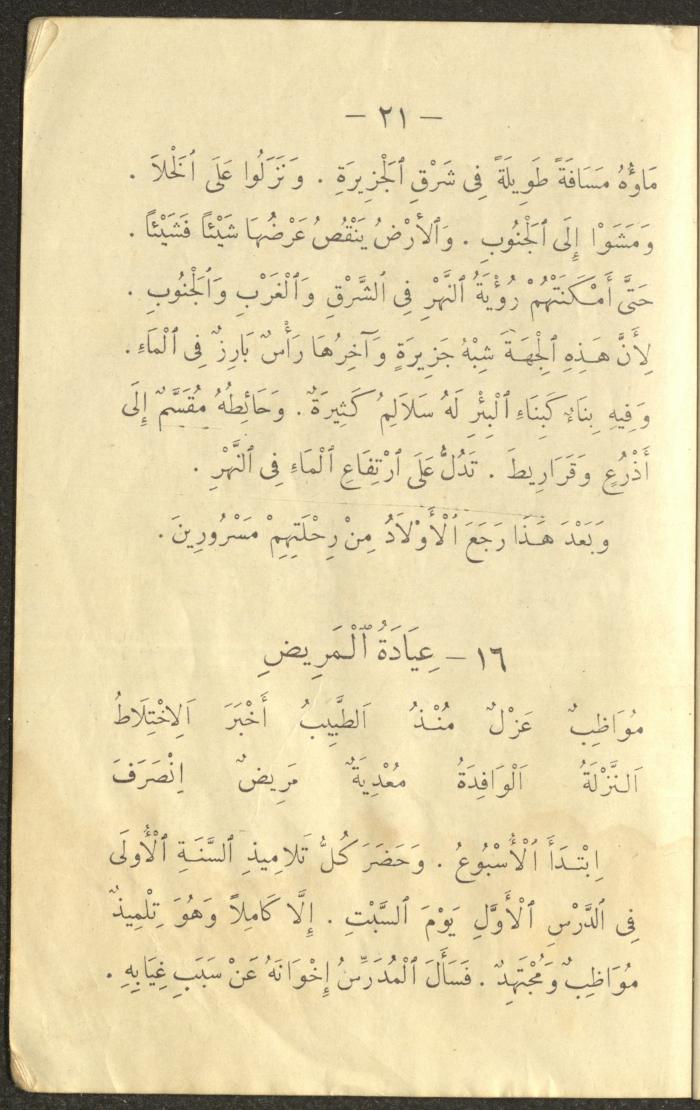 — ٢١ —
مَاؤُهُ مَسَافَةً طَوِيلَةً فِي شَرْقِ ٱلْجَزِيرَةِ . وَنَزَلُوا عَلَى ٱلْخَلَا .
وَمَشَوْا إِلَى ٱلْجَنُوبِ . وَٱلْأَرْضُ يَنْقُصُ عَرْضُهَا شَيْئاً فَشَيْئاً .
حَتَّى أَمْكَنَتْهُمْ رُؤْيَةُ ٱلنَّهْرِ فِي ٱلشَّرْقِ وَٱلْغَرْبِ وَٱلْجَنُوبِ .
لِأَنَّ هَـذِهِ ٱلْجِهَـةَ شِبْهُ جَزِيرَةٍ وَآخِرُهَا رَأْسٌ بَارِزٌ فِي ٱلْمَاءِ .
وَفِيهِ بِنَاءٌ كَبِنَاءِ ٱلْبِئْرِ لَهُ سَلَالِمُ كَثِيرَةٌ . وَحَائِطُهُ مُقَسَّمٌ إِلَى
أَذْرُعٍ وَقَرَارِيطَ . تَدُلُّ عَلَى ٱرْتِفَاعِ ٱلْمَاءِ فِي ٱلنَّهْرِ .
وَبَعْدَ هَـذَا رَجَعَ ٱلْأَوْلَادُ مِنْ رِحْلَتِهِمْ مَسْرُورِينَ .
١٦ – عِيَادَةُ ٱلْمَرِيضِ
مُوَاظِبٌ عَزْلٌ مُنْـذُ اَلطَّبِيبُ أَخْبَرَ اَلِاخْتِلَاطُ
اَلنَّزْلَةُ اَلْوَافِدَةُ مُعْدِيَةٌ مَرِيضٌ اِنْصَرَفَ
اِبْتَـدَأَ ٱلْأُسْبُوعُ . وَحَضَرَ كُلُّ تَلَامِيذِ ٱلسَّنَةِ ٱلْأُولَى
فِي ٱلدَّرْسِ ٱلْأَوَّلِ يَوْمَ ٱلسَّبْتِ . إِلَّا كَامِلاً وَهُوَ تِلْمِيذٌ
مُوَاظِبٌ وَمُجْتَهِدٌ . فَسَأَلَ ٱلْمُدَرِّسُ إِخْوَانَهُ عَنْ سَبَبِ غِيَابِهِ .